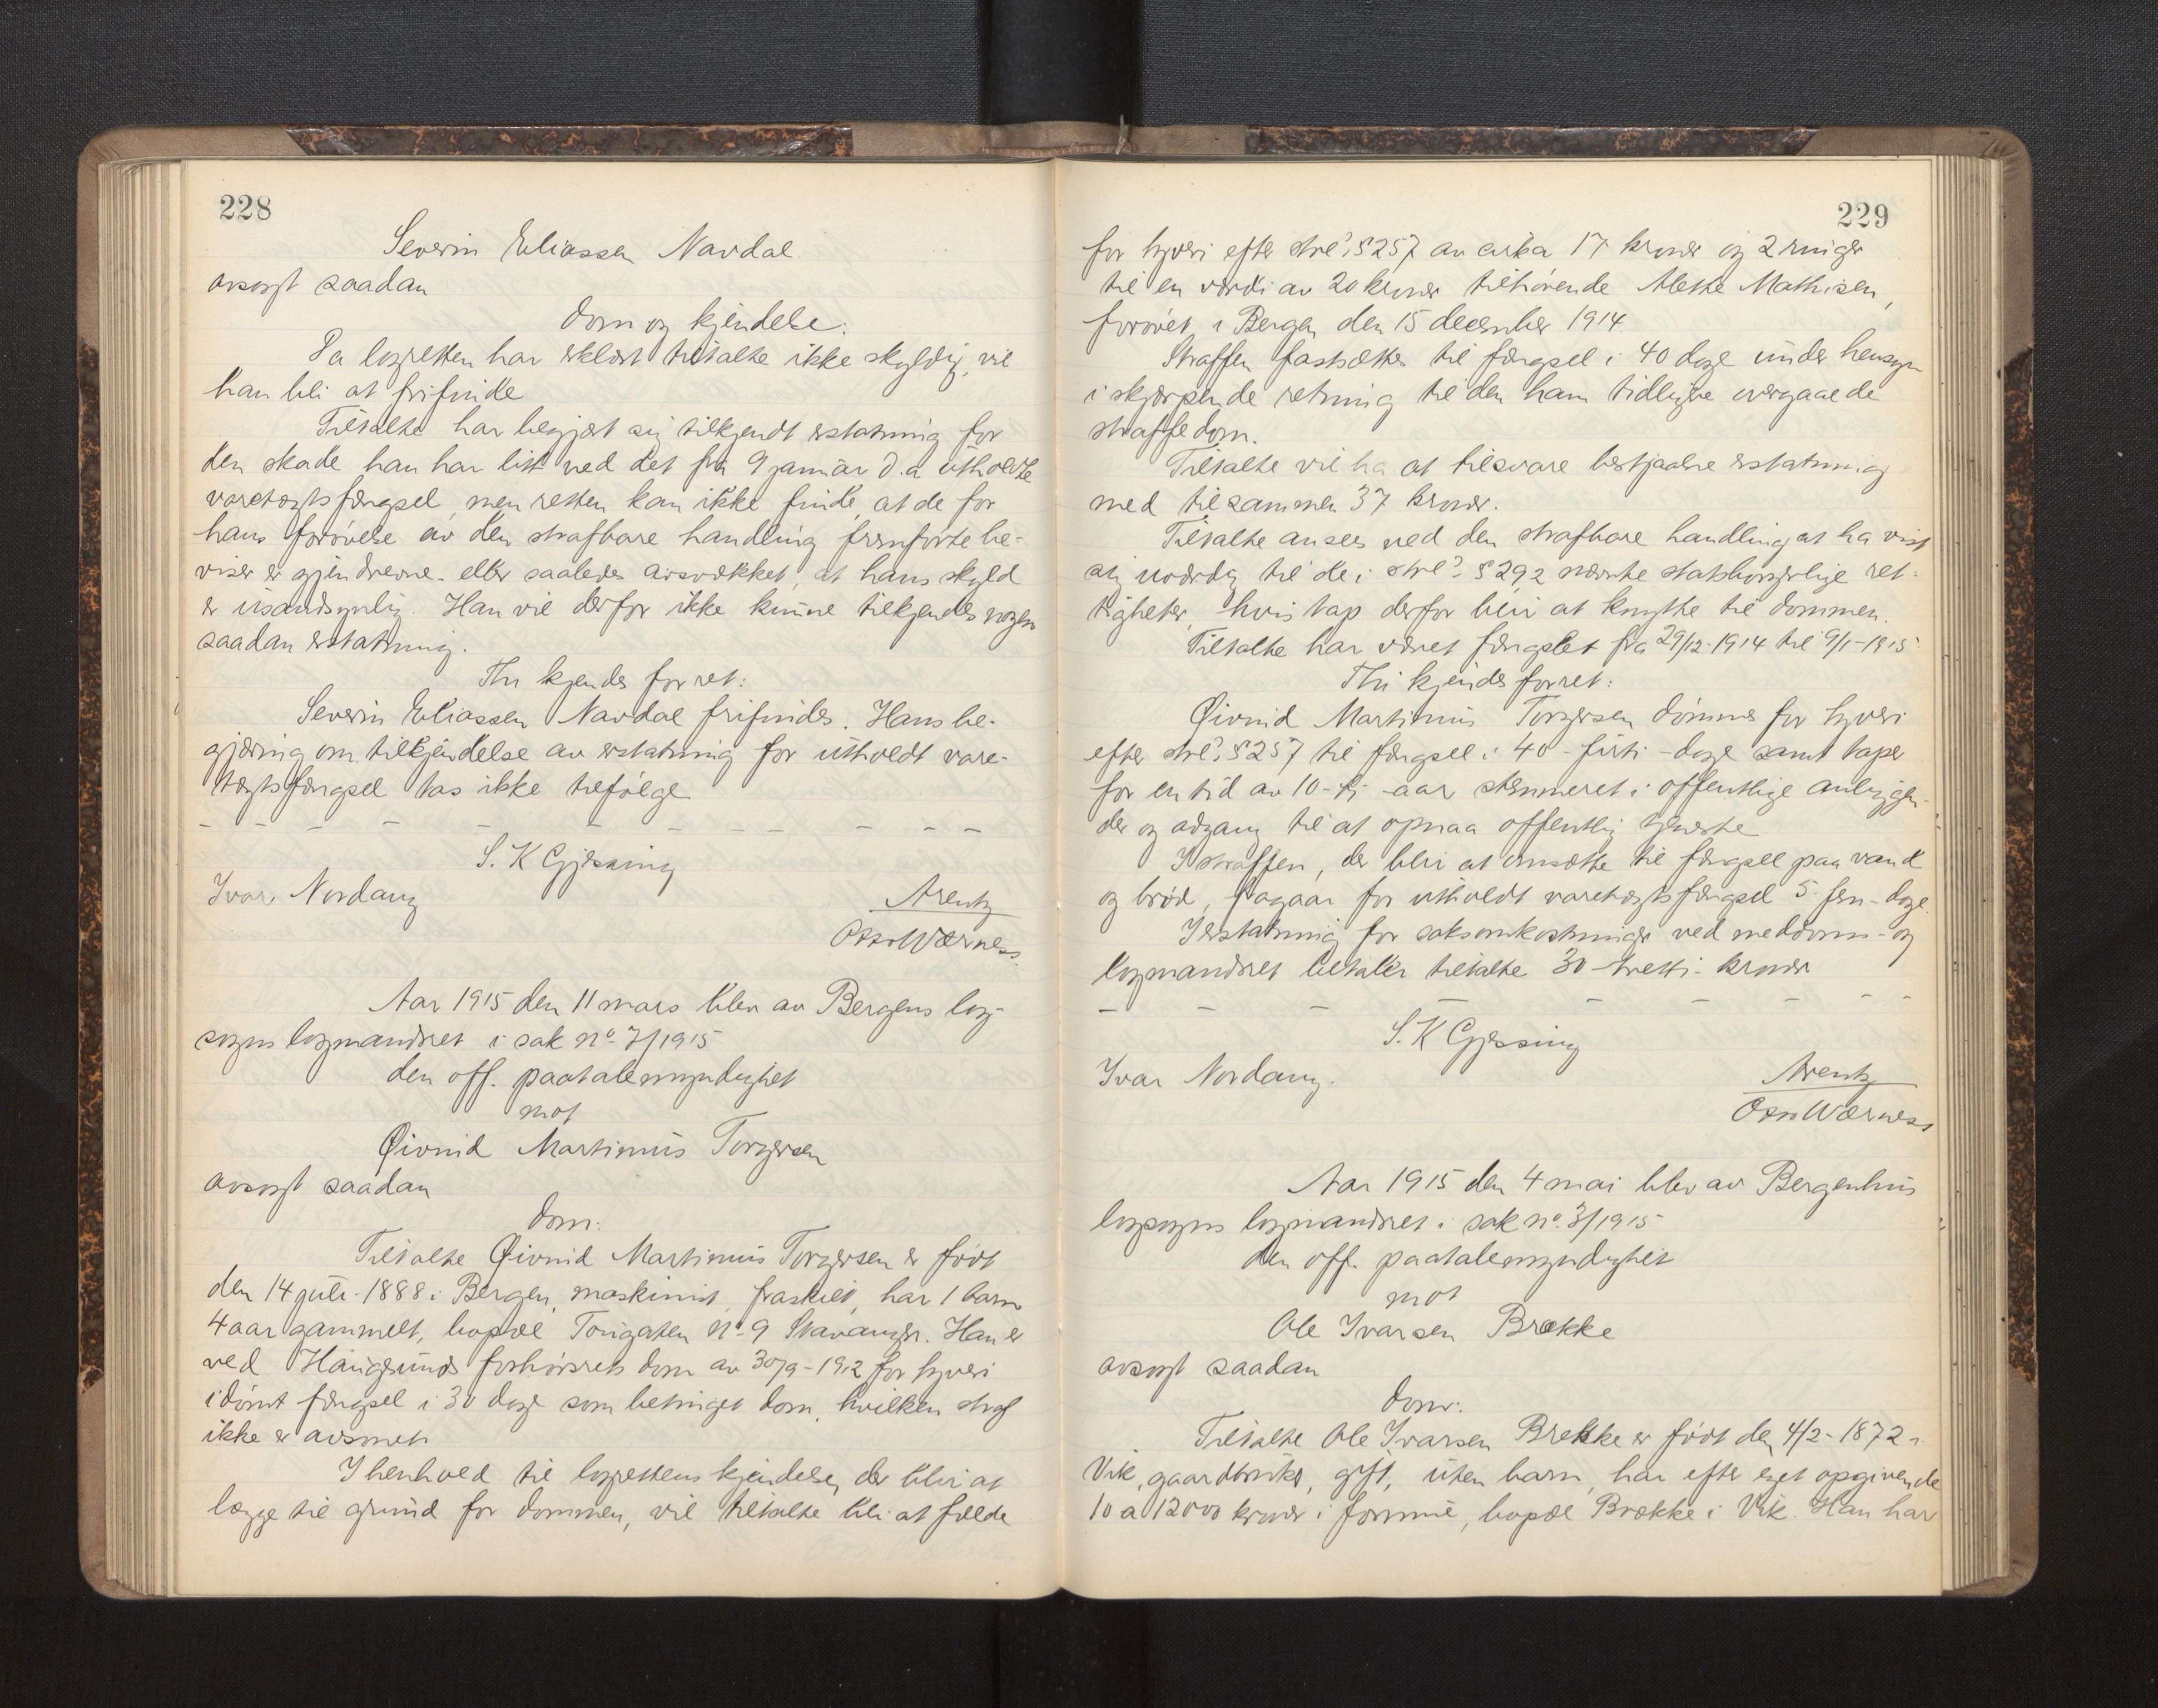 228
Severin Eliassen Navdal
avsagt saadan
dom og kjendelse:
Da lagretten har erklært tiltalte ikke skyldig, vil
han bli at frifinde
Tiltalte har begjært sig tilkjendt erstatning for
den skade han har lidt ved det fra 9 januar d.a utholdte
varetægtsfængsel, men retten kan ikke finde, at de for
hans forøvelse av den strafbare handling fremførte be-
viser er gjendrevne eller saaledes avsvækket, at hans skyld
er usandsynlig. Han vil derfor ikke kunne tilkjendes nogen
saadan erstatning.
Thi kjendes for ret:
Severin Eliassen Navdal frifindes. Hans be-
gjæring om tilkjendelse av erstatning for utholdt vare-
tægtsfængsel tas ikke tilfølge
S. K Gjessing
Ivar Nordang
Arentz
Otto Wærness.
Aar 1915 den 11 mars blev av Bergens lag-
sogns lagmandsret i sak no. 7/1915
den off. paatalemyndighet
mot
Øivind Martinius Torgersen
avsagt saadan
dom:
Tiltalte Øivind Martinius Torgersen er født
den 14 juli 1888 i Bergen, maskinist, fraskilt, har 1 barn
4 aar gammelt, bopæl no 9 Stavanger. Han er
ved Haugesunds forhørsrets dom av 30/9-1912 for tyveri
idømt fængsel i 30 dage som betinget dom, hvilken straf
ikke er avsonet.
I henhold til lagrettens kjendelse, der blir at
lægge til grund for dommen, vil tiltalte bli at fælde
229
for tyveri efter strl. § 257 av cirka 17 kroner og 2 ringer
til en værdi av 20 kroner tilhørende Alette Mathisen,
forøvet i Bergen den 15 december 1914.
Straffen fastsættes til fængsel i 40 dage under hensyn
i skjærpende retning til den ham tidligere overgaaede
straffedom.
Tiltalte vil ha at tilsvare bestjaalne erstatning
med tilsammen 37 kroner.
Tiltalte ansees ved den strafbare handling at ha vist
sig uværdig til de i strl. § 29,2 nævnte statsborgerlige ret-
tigheter, hvis tap derfor blir at knytte til dommen.
Tiltalte har været fængslet fra 29/12-1914 til 9/1-1915
Thi kjendes for ret:
Øivind Martinius Torgersen dømmes for tyveri
efter strl. § 257 til fængsel i 40 - firti - dage samt taper
for en tid av 10 - ti - aar stemmeret i offentlige anliggen-
der og adgang til at opnaa offentlig tjeneste
I straffen, der blir at omsætte til fængsel paa vand
og brød, fragaar for utholdt varetægtsfængsel 5 - fem - dage.
I erstatning for saksomkostninger ved meddoms- og
lagmandsret betaler tiltalte 30 - tretti - kroner
S. K Gjessing
Ivar Nordang.
Arentz
Otto Wærness
Aar 1915 den 4 mai blev av Bergenhus
lagsogns lagmandsret i sak no. 3/1915
den off. paatalemyndighet
mot
Ole Ivarsen Brække
avsagt saadan
dom:
Tiltalte Ole Ivarsen Brække er født den 4/2-1872 i
Vik, gaardbruker, gift, uten barn, har efter eget opgivende
10 a 12000 kroner i formue, bopæl Brække i Vik. Han har